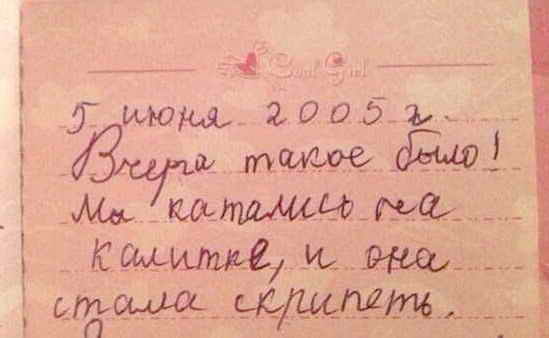 Girl
5 июня 2005 г.
Вчера такое было!
Мы катались на
калитке, и она
стала скрипеть.